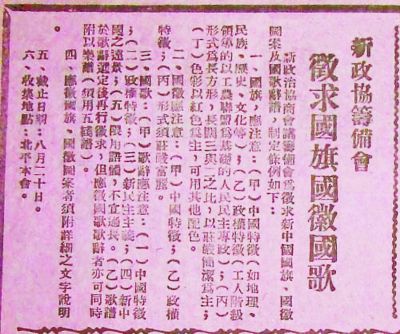 新政協籌備會
徵求國旗國徽國歌
新政治協商會議籌備會爲徵求新中國國旗、國徽
圖案及國歌辭譜,制定條例如下:
一、國旗應注意:(甲)中國特徵(如地理、
民族、歷史、文化等);(乙)政權特徵(工人階級
領導的以工農聯盟爲基礎的人民民主專政);(丙)
形式爲長方形,長闊三與二之比,以莊嚴簡潔爲主;
(丁)色彩以紅色爲主,可用其他配色。
二、國徽應注意:(甲)中國特徵;(乙)政權
特徵;(丙)形式須莊嚴富麗。
三、國歌:(甲)歌辭應注意:(一)中國特徵
;(二)政權特徵;(三)新民主主義;(四)新中
國之遠景;(五)限用語體,不宜過長。(乙)歌譜
於歌辭選定後再行徵求,但應徵國歌歌辭者亦可同時
附以樂譜(須用五綫譜)。
四、應徵國旗、國徽圖案者須附詳細之文字說明
五、截止日期:八月二十日。
六、收集地點:北平本會。